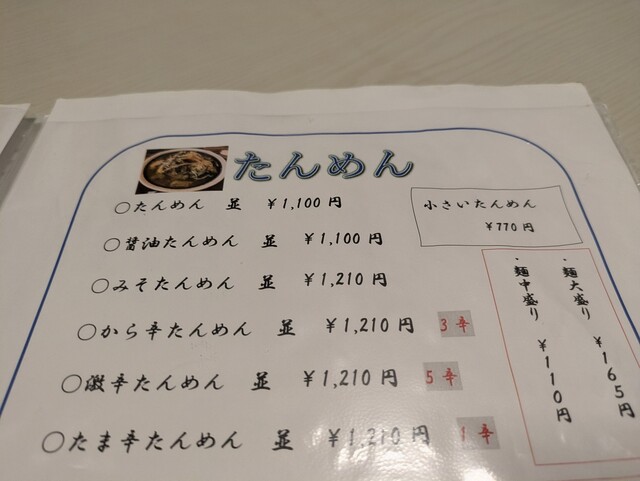 たんめん
○たんめん 並 ¥1,100円
○醤油たんめん 並 ¥1,100円
○みそたんめん 並 ¥1,210円
○から辛たんめん 並 ¥1,210円 3辛
○激辛たんめん 並 ¥1,210円 5辛
○たま辛たんめん 並 ¥1,210円 1辛
小さいたんめん
¥770円
・麺大盛り ¥165円
・麺中盛り ¥110円